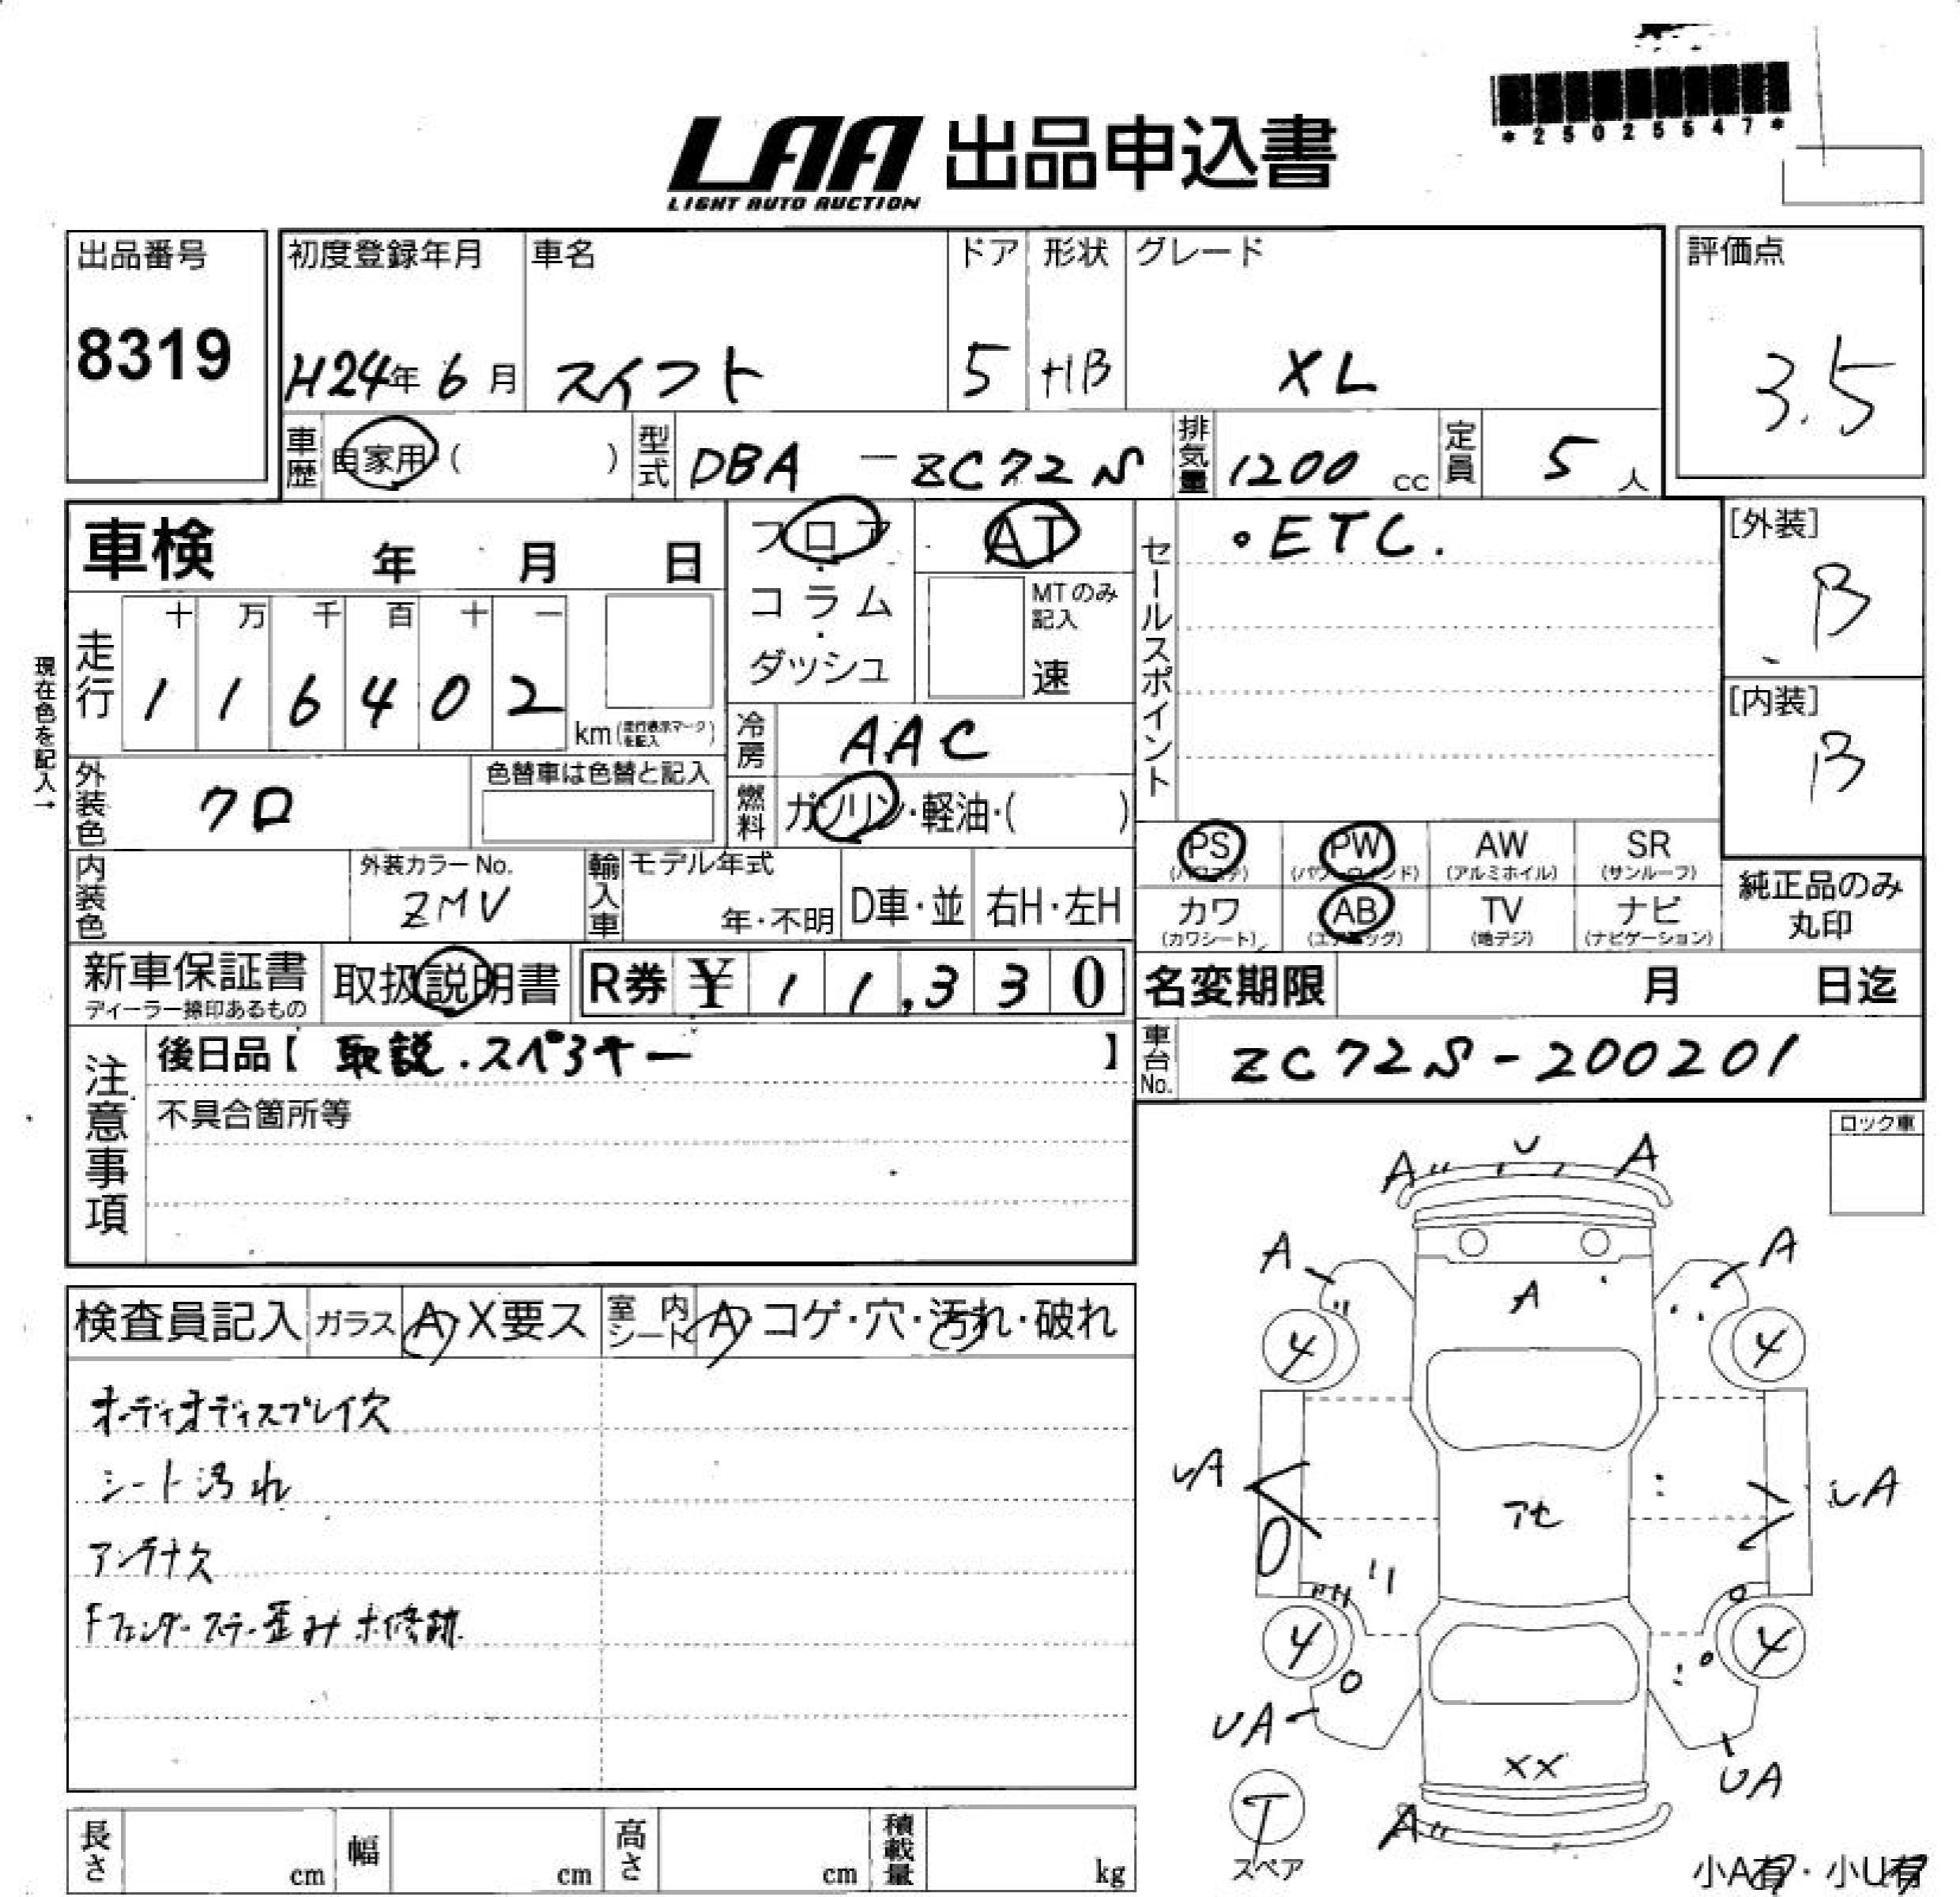 *25025547*
LAA 出品申込書
LIGHT AUTO AUCTION
出品番号 初度登録年月 車名 ドア 形状 グレード 評価点
8319 H24年6月 スイフト 5 HB XL 3.5
車歴 自家用( ) 型式 DBA-ZC72S 排気量 1200cc 定員 5人
車検 年 月 日 フロア・ AT セールスポイント ・ETC. [外装]
B
十 万 千 百 十 一 コラム・ MTのみ記入
現在色を記入→
走行 116402 km(走行表示マークを記入) ダッシュ 速 [内装]
冷房 AAC B
外装色 クロ 色替車は色替と記入 燃料 ガソリン・軽油・( )
PS AW SR
(パワステ) PW (パワーウィンド) (アルミホイル) (サンルーフ)
内装色 外装カラーNo. 輸入車 モデル年式 純正品のみ丸印
ZMV 年・不明 D車・並 右H・左H カワ AB TV ナビ
(カワシート) (エアバッグ) (地デジ) (ナビゲーション)
新車保証書 取扱説明書 R券 ¥11,330 名変期限 月 日迄
ディーラー捺印あるもの
注意事項 後日品【 取説.スペアキー 】 車台No. ZC72S-200201
不具合箇所等 ロック車
U
A〃 A
A A
A
検査員記入 ガラス A・X要ス 室内シート A・コゲ・穴・汚れ・破れ
4 4
オーディオディスプレイ欠
シート汚れ UA UA
アセ
アンテナ欠
Fフェンダーステー歪み 未修跡
4 4
UA
XX
UA
A〃
T
スペア
長さ cm 幅 cm 高さ cm 積載量 kg
小A有・小U有